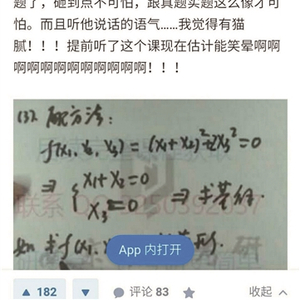 题了，砸到点不可怕，跟真题买题这么像才可
怕。而且听他说话的语气……我觉得有猫
腻！！！提前听了这个课现在估计能笑晕啊啊
啊啊啊啊啊啊啊啊啊啊！！！
(3) 配方法：
f(x₁, x₂, x₃) = (x₁+x₂)²+2x₃²=0
⇒ { x₁+x₂=0
x₃=0 ⇒ 求基础
联系
如 求f(x₁,
App 内打开
研
182
评论 83
收起